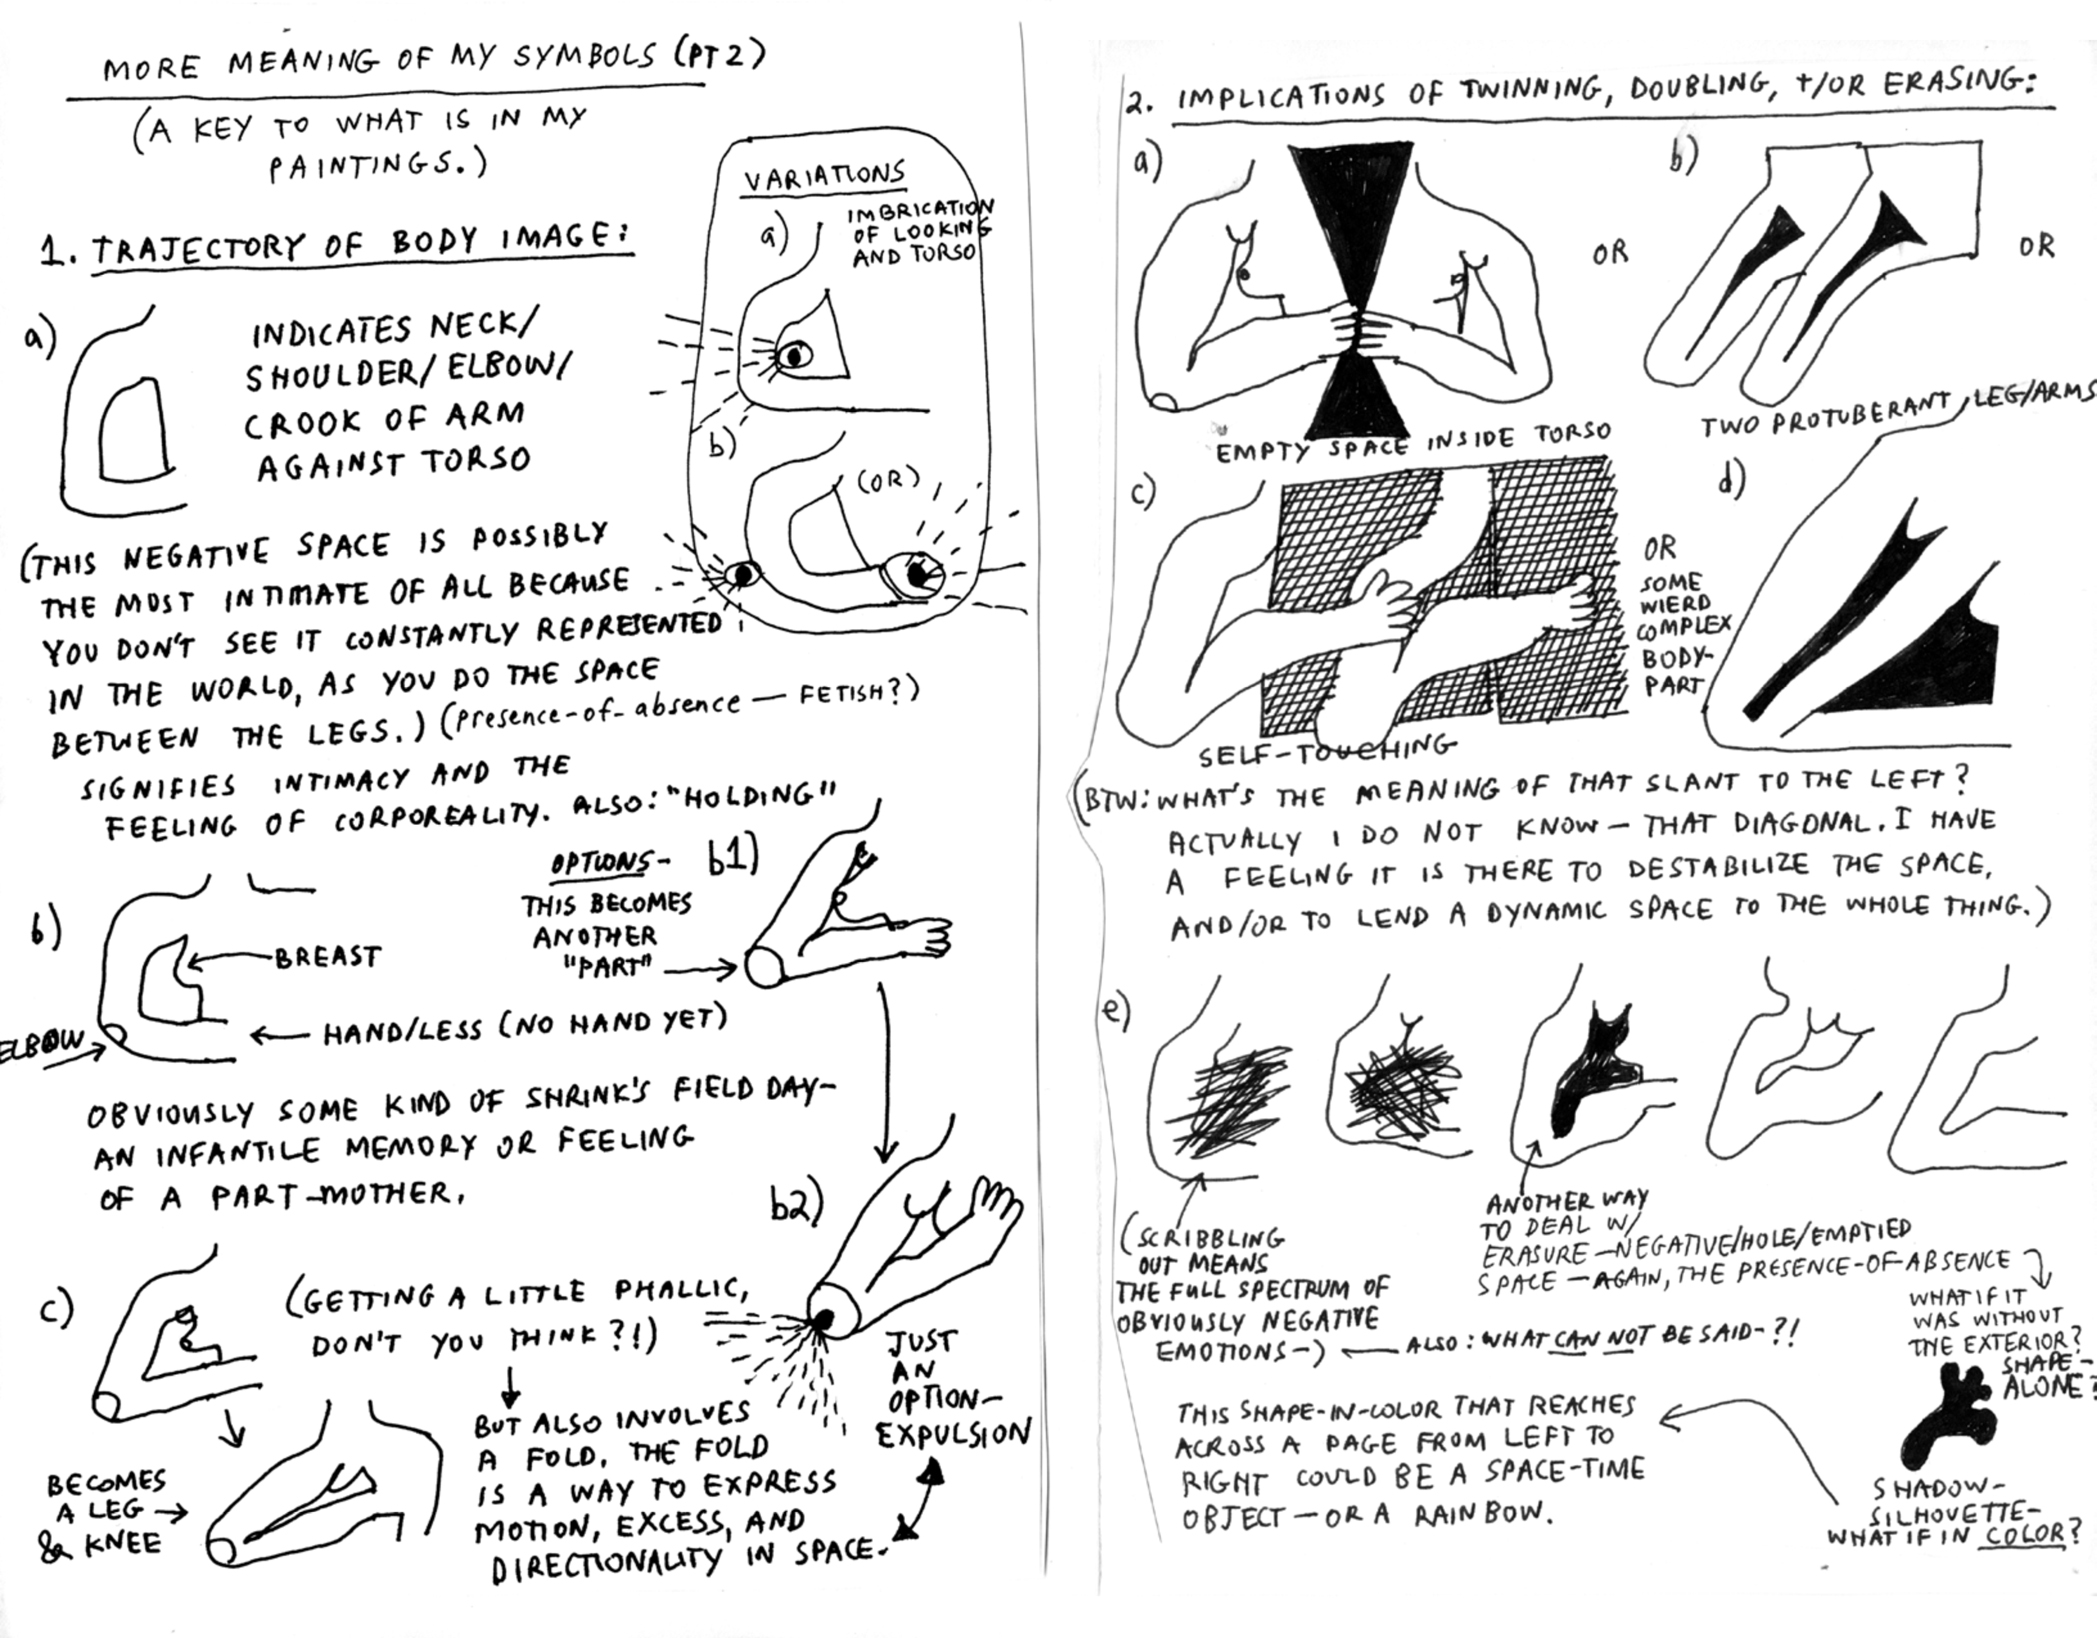 MORE MEANING OF MY SYMBOLS (PT 2)
(A KEY TO WHAT IS IN MY
PAINTINGS.)
1. TRAJECTORY OF BODY IMAGE:
a)
INDICATES NECK/
SHOULDER/ELBOW/
CROOK OF ARM
AGAINST TORSO
VARIATIONS
a)
IMBRICATION
OF LOOKING
AND TORSO
b)
(OR)
(THIS NEGATIVE SPACE IS POSSIBLY
THE MOST INTIMATE OF ALL BECAUSE
YOU DON'T SEE IT CONSTANTLY REPRESENTED
IN THE WORLD, AS YOU DO THE SPACE
BETWEEN THE LEGS.) (presence-of-absence — FETISH?)
SIGNIFIES INTIMACY AND THE
FEELING OF CORPOREALITY. ALSO: "HOLDING"
b)
BREAST
HAND/LESS (NO HAND YET)
ELBOW
OPTIONS-
b1)
THIS BECOMES
ANOTHER
"PART"
OBVIOUSLY SOME KIND OF SHRINK'S FIELD DAY-
AN INFANTILE MEMORY OR FEELING
OF A PART-MOTHER.
b2)
JUST
AN
OPTION-
EXPULSION
c)
(GETTING A LITTLE PHALLIC,
DON'T YOU THINK?!)
BECOMES
A LEG
& KNEE
BUT ALSO INVOLVES
A FOLD. THE FOLD
IS A WAY TO EXPRESS
MOTION, EXCESS, AND
DIRECTIONALITY IN SPACE.
2. IMPLICATIONS OF TWINNING, DOUBLING, +/OR ERASING:
a)
OR
EMPTY SPACE INSIDE TORSO
b)
OR
TWO PROTUBERANT LEG/ARMS
c)
SELF-TOUCHING
OR
SOME
WIERD
COMPLEX
BODY-
PART
d)
(BTW: WHAT'S THE MEANING OF THAT SLANT TO THE LEFT?
ACTUALLY I DO NOT KNOW — THAT DIAGONAL. I HAVE
A FEELING IT IS THERE TO DESTABILIZE THE SPACE,
AND/OR TO LEND A DYNAMIC SPACE TO THE WHOLE THING.)
e)
(SCRIBBLING
OUT MEANS
THE FULL SPECTRUM OF
OBVIOUSLY NEGATIVE
EMOTIONS-)
ALSO: WHAT CAN NOT BE SAID-?!
ANOTHER WAY
TO DEAL W/
ERASURE—NEGATIVE/HOLE/EMPTIED
SPACE — AGAIN, THE PRESENCE-OF-ABSENCE
WHAT IF IT
WAS WITHOUT
THE EXTERIOR?
SHAPE-
ALONE?
SHADOW-
SILHOVETTE-
WHAT IF IN COLOR?
THIS SHAPE-IN-COLOR THAT REACHES
ACROSS A PAGE FROM LEFT TO
RIGHT COULD BE A SPACE-TIME
OBJECT — OR A RAINBOW.